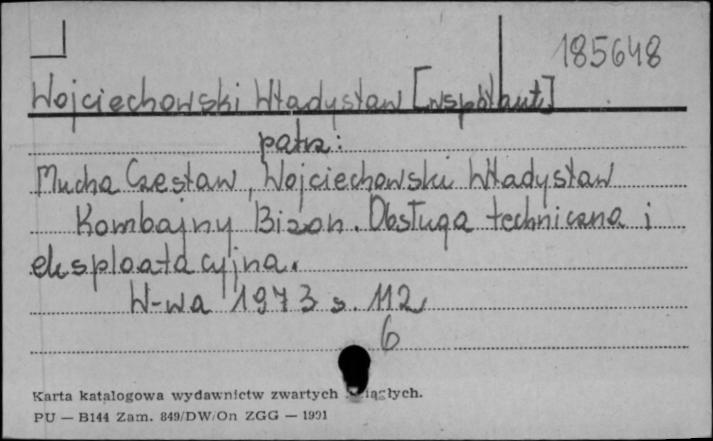 185648
Wojciechowski Władysław [współaut.]
patrz:
Mucha Czesław, Wojciechowski Władysław
Kombajny Bizon. Obsługa techniczna i
eksploatacyjna.
W-wa 1973 s. 112
6
Karta katalogowa wydawnictw zwartych ciągłych.
PU — B144 Zam. 849/DW/On ZGG — 1991